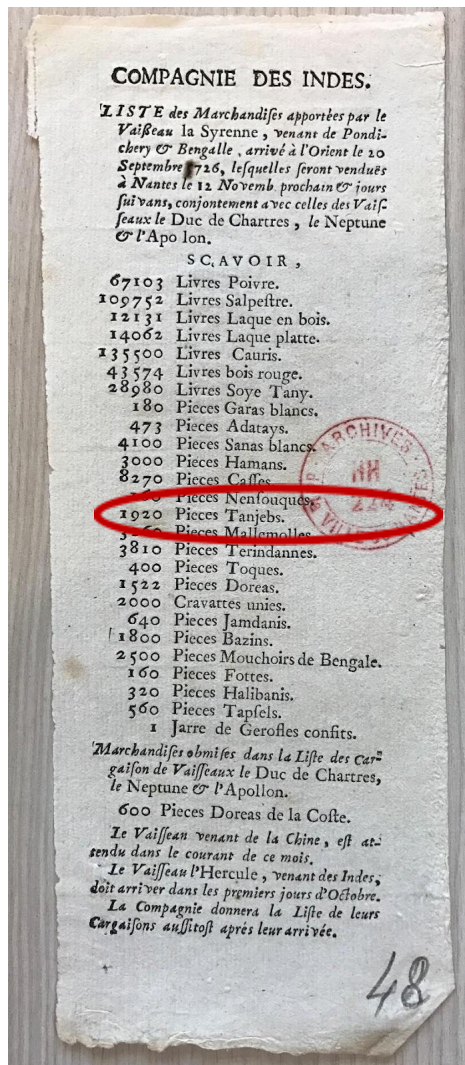 COMPAGNIE DES INDES.
LISTE des Marchandiſes apportées par le
Vaiſſeau la Syrenne, venant de Pondi-
chery & Bengalle, arrivé à l'Orient le 20
Septembre 1726, leſquelles ſeront venduës
à Nantes le 12 Novemb. prochain & jours
ſuivans, conjontement avec celles des Vaiſ-
ſeaux le Duc de Chartres, le Neptune
& l'Apo lon.
SÇAVOIR,
67103 Livres Poivre.
109752 Livres Salpeſtre.
12131 Livres Laque en bois.
14062 Livres Laque platte.
135500 Livres Cauris.
43574 Livres bois rouge.
28980 Livres Soye Tany.
180 Pieces Garas blancs.
473 Pieces Adatays.
4100 Pieces Sanas blancs.
3000 Pieces Hamans.
8270 Pieces Caſſes.
Pieces Nenſouques.
1920 Pieces Tanjebs.
Pieces Mallemolles.
3810 Pieces Terindannes.
400 Pieces Toques.
1522 Pieces Doreas.
2000 Cravattes unies.
640 Pieces Jamdanis.
1800 Pieces Bazins.
2500 Pieces Mouchoirs de Bengale.
160 Pieces Fottes.
320 Pieces Halibanis.
560 Pieces Tapſels.
1 Jarre de Gerofles confits.
Marchandiſes obmiſes dans la Liſte des Car-
gaiſon de Vaiſſeaux le Duc de Chartres,
le Neptune & l'Apollon.
600 Pieces Doreas de la Coſte.
Le Vaiſſeau venant de la Chine, eſt at-
tendu dans le courant de ce mois.
Le Vaiſſeau l'Hercule, venant des Indes,
doit arriver dans les premiers jours d'Octobre.
La Compagnie donnera la Liſte de leurs
Cargaiſons auſſitoſt aprés leur arrivée.
48
ARCHIVES